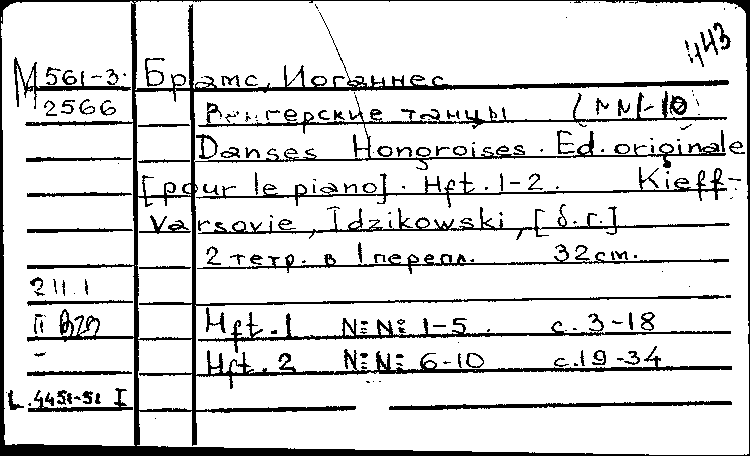 443
М 561-3 Брамс, Иоганнес
2566 Венгерские танцы (NN1-10)
Danses Hongroises. Ed. originale
[pour le piano]. Hft. 1-2. Kieff-
Varsovie, Idzikowski, [б.г.]
2 тетр. в 1 перепл. 32 cm.
211.1
II Hft. 1 №№ 1-5. с. 3-18
- Hft. 2 №№ 6-10 с. 19-34
L. 4451-51 I